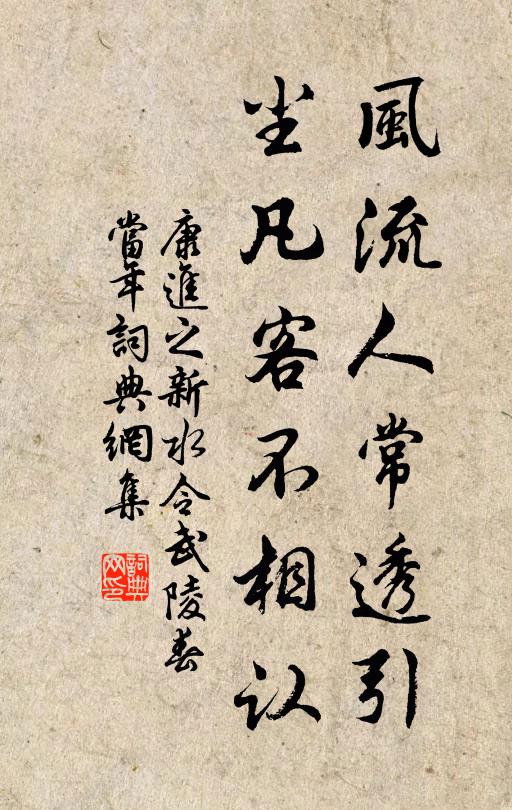 風流人常透引
尘凡客不相认
康進之新水令武陵春
當年詞典網集
詞典网印